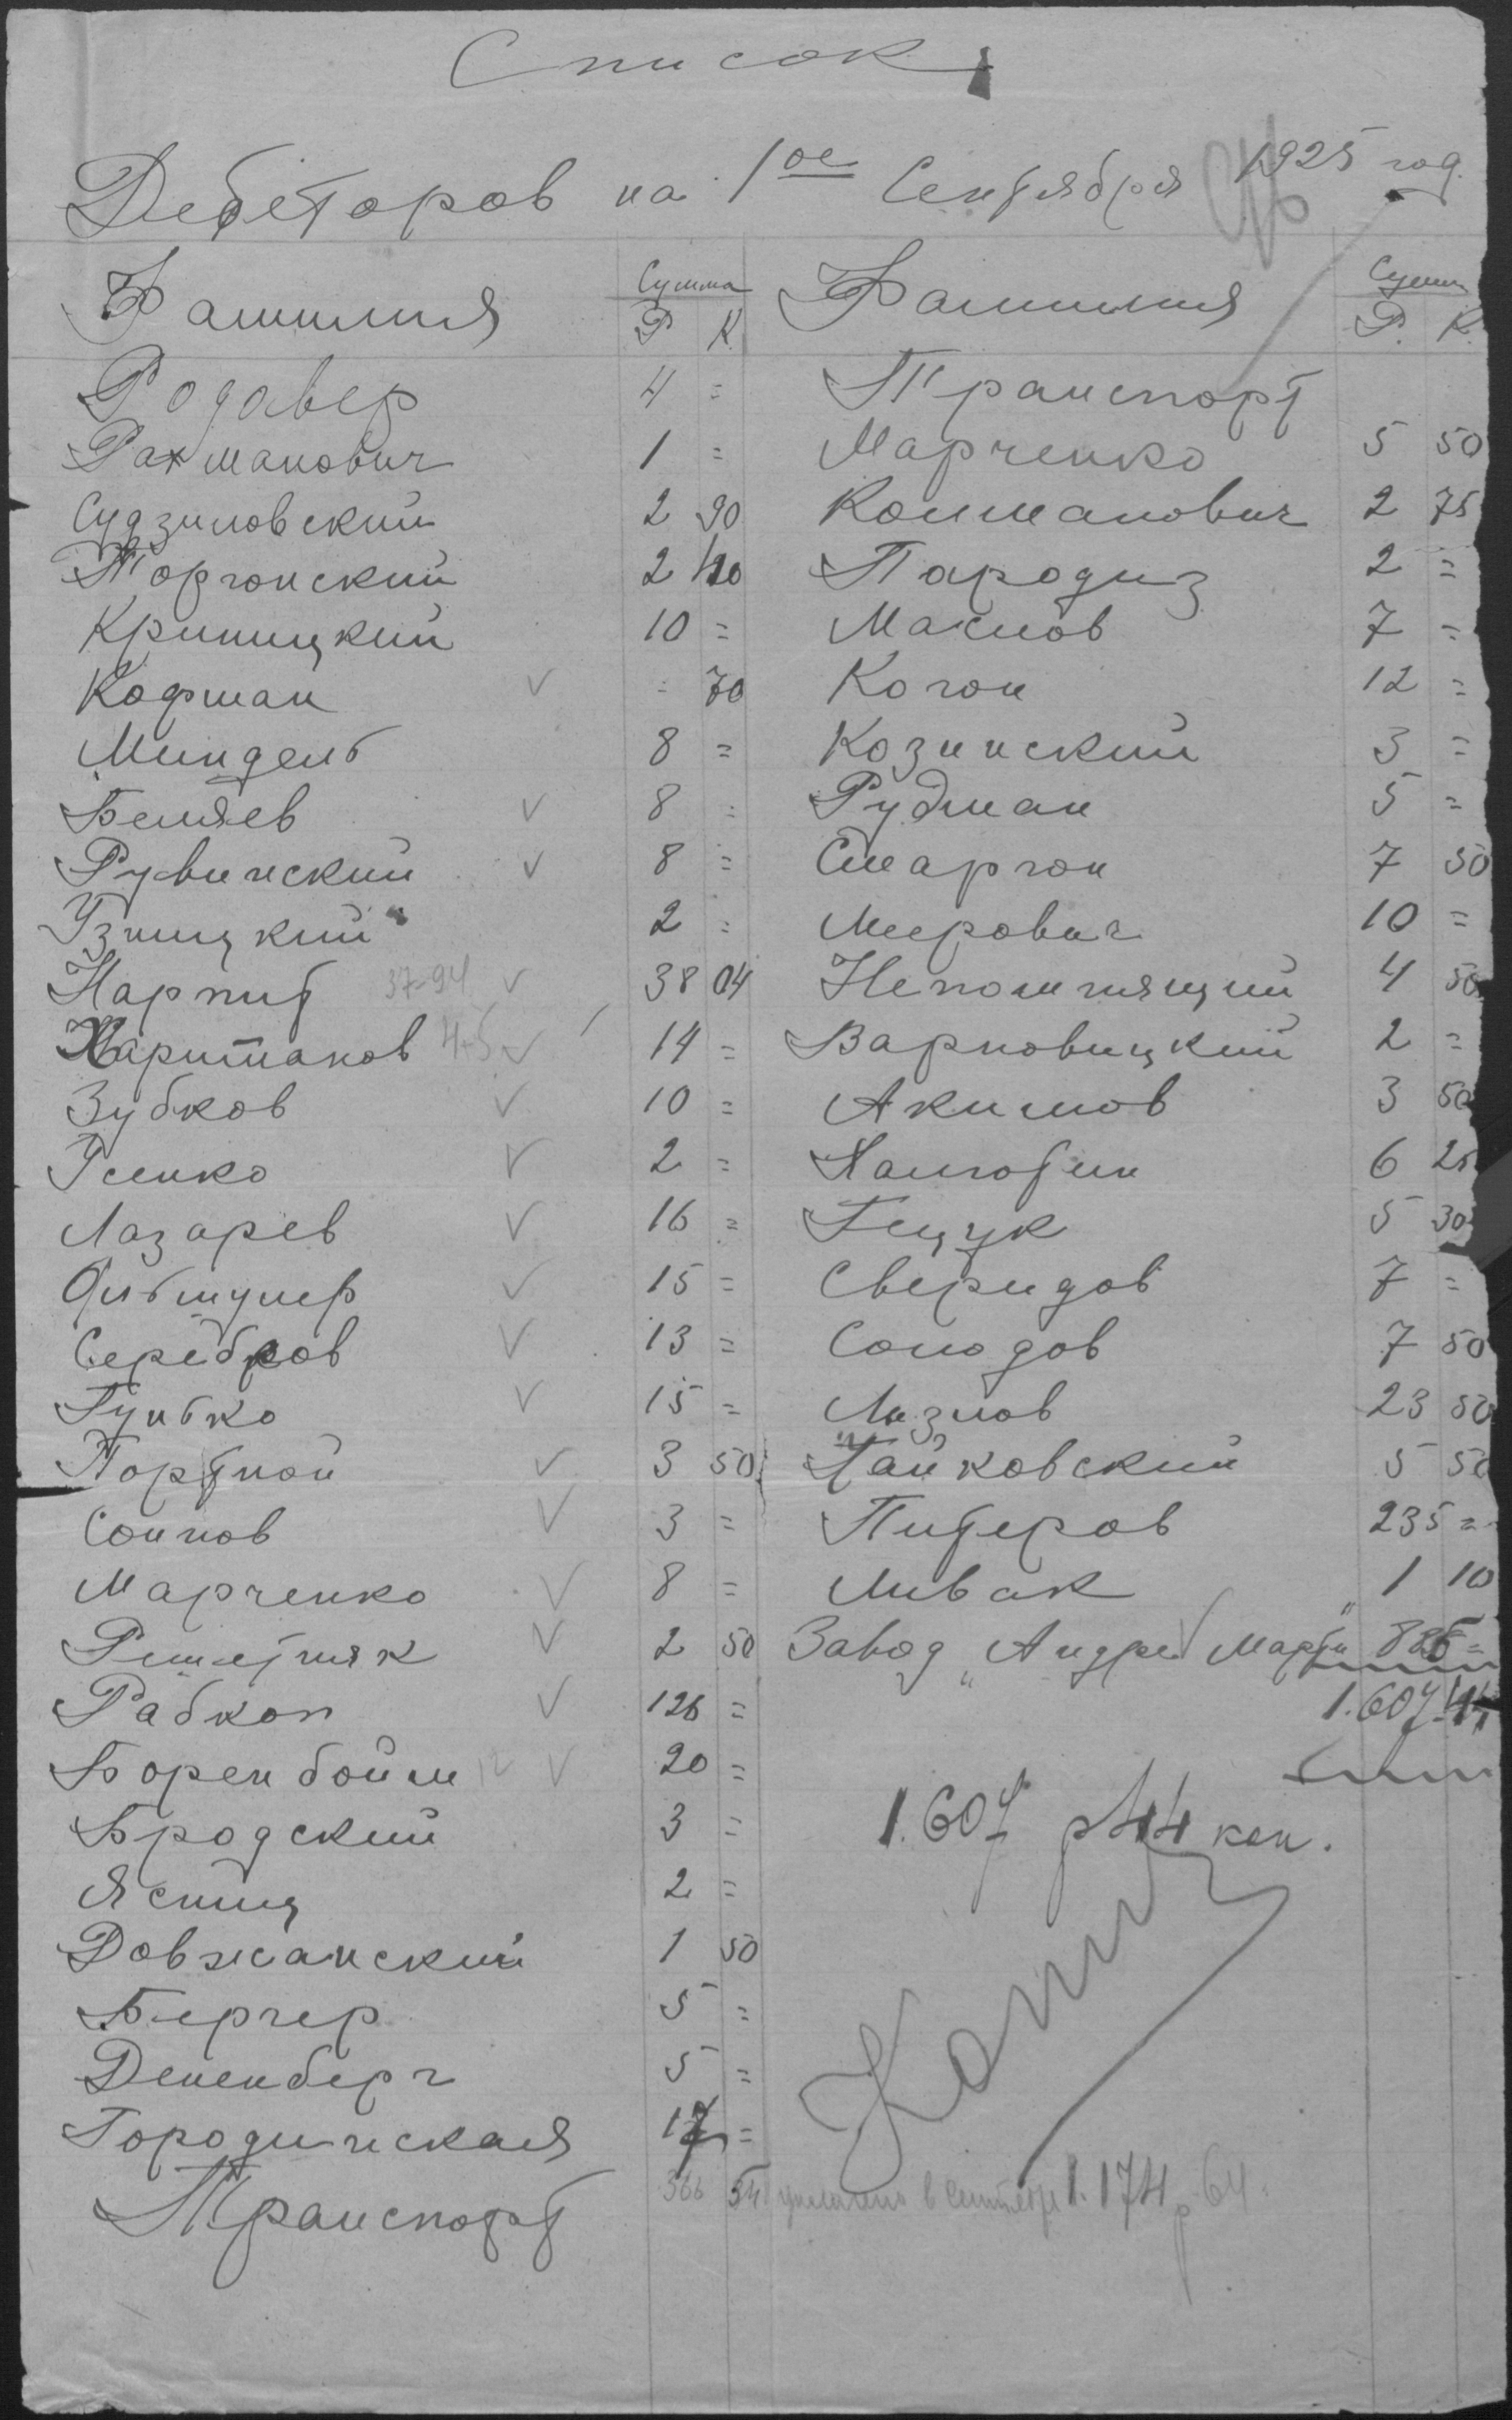 Список
Дебеторов на 1ое Сентября 1925 год.
Фамилия Сумма Р К.
Родавер 4 =
Рахманович 1 =
Судзиловский 2 90
Торгонский 2 40
Криницкий 10 =
Кофман ✓ = 70
Миндель 8 =
Беляев ✓ 8 =
Рувинский ✓ 8 =
Узницкий 2 =
Нарпит 37-94 ✓ 38 04
Хаританов ✓ 14 =
Зубков ✓ 10 =
Усенко ✓ 2 =
Лазарев ✓ 16 =
✓ 15 =
Серебров ✓ 13 =
Гунько ✓ 15 =
Портной ✓ 3 50
Соннов ✓ 3 =
Марченко ✓ 8 =
Решетняк ✓ 2 50
Рабкоп ✓ 126 =
Боренбойм ✓ 20 =
Бродский 3 =
Ясниц 2 =
Довжанский 1 50
Бергер 5 =
Дененберг 5 =
Городинская 17 =
Транспорт 366 54
Фамилия Сумма Р. К.
Транспорт
Марченко 5 50
Колманович 2 75
Пародиз 2 =
Маслов 7 =
Когон 12 =
Козинский 3 =
Рудман 5 =
Сморгон 7 50
Меерович 10 =
Непомнящий 4 50
Варновицкий 2 =
Акимов 3 50
6 25
Гецук 5 30
Сверидов 7 =
Солодов 7 50
Лизнов 23 50
Чайковский 5 50
Питеров 235 =
Ливак 1 10
Завод „Андре Марти" 886 =
1.607.44
1.607 р 44 коп.
в сентябре 1.174 р 64.